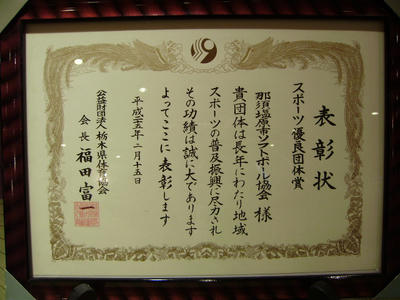 表彰状
スポーツ優良団体賞
那須塩原市ソフトボール協会 様
貴団体は長年にわたり地域
スポーツの普及振興に尽力され
その功績は誠に大であります
よってここに表彰します
平成二十五年二月十五日
公益財団法人栃木県体育協会
会長 福田富一